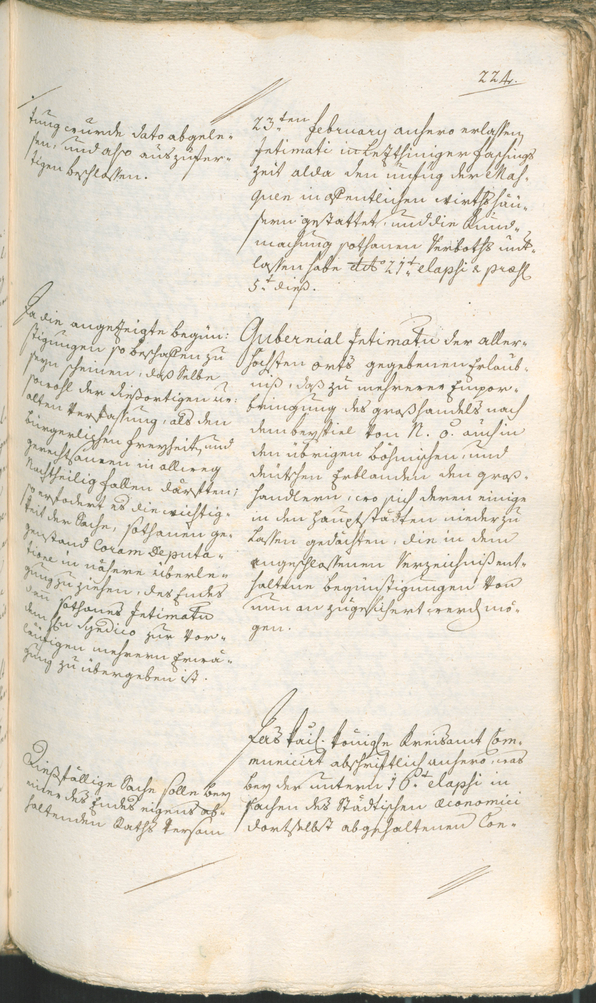 224.
tung wurde dato abgele-
sen, und also auszufer-
tigen beschlossen.
23ten february anhero erlassen
Intimati in letzthiniger Fasings
zeit alda den unfug der Mas-
quen in offentlichen wirthshäu-
sern gestattet, und die Kund-
machung sothanen Verboths unt-
lassen habe dto 27t elapsi & præs
5t dieß.
Da die angezeigte begün-
stigungen so beschaffen zu
seyn scheinen, daß selbe
sowohl der dießortigen ur-
alten Verfassung, als den
bürgerlichen freyheit, und
gerechtsamen in allweg
Nachtheilig fallen därften:
so erfodert es die wichtig-
keit der Sache, sothanen ge-
genstand Coram Deputa-
tione in nähere überle-
gung zu ziehen, des Endes
den sothanes Intimatu
dem Hn Syndico zur Vor-
läufigen mehrern Erwä-
gung zu übergeben ist.
Gubernial Intimatu der aller-
höchsten orts gegebenen Erlaub-
niß, daß zu mehrerer Empor-
bringung des großhandels nach
dem beyspiel von N. Ö. auch in
den übrigen böhmischen, und
deutschen Erblanden den groß-
handlern, wo sich deren einige
in den hauptstädten nieder zu
lassen gedächten, die in dem
angeschlossenen Verzeichniß ent-
haltene begünstigungen von
nun an zugesichert werden mö-
gen.
Dießfällige Sache solle bey
einer des Endes eigens ab-
haltenden Raths Versam
Das kais. königle Kreisamt Com-
municirt abschriftlich anhero, was
bey der unterm 16t elapsi in
sachen des Städtischen œconomici
dortselbst abgehaltenen Con-